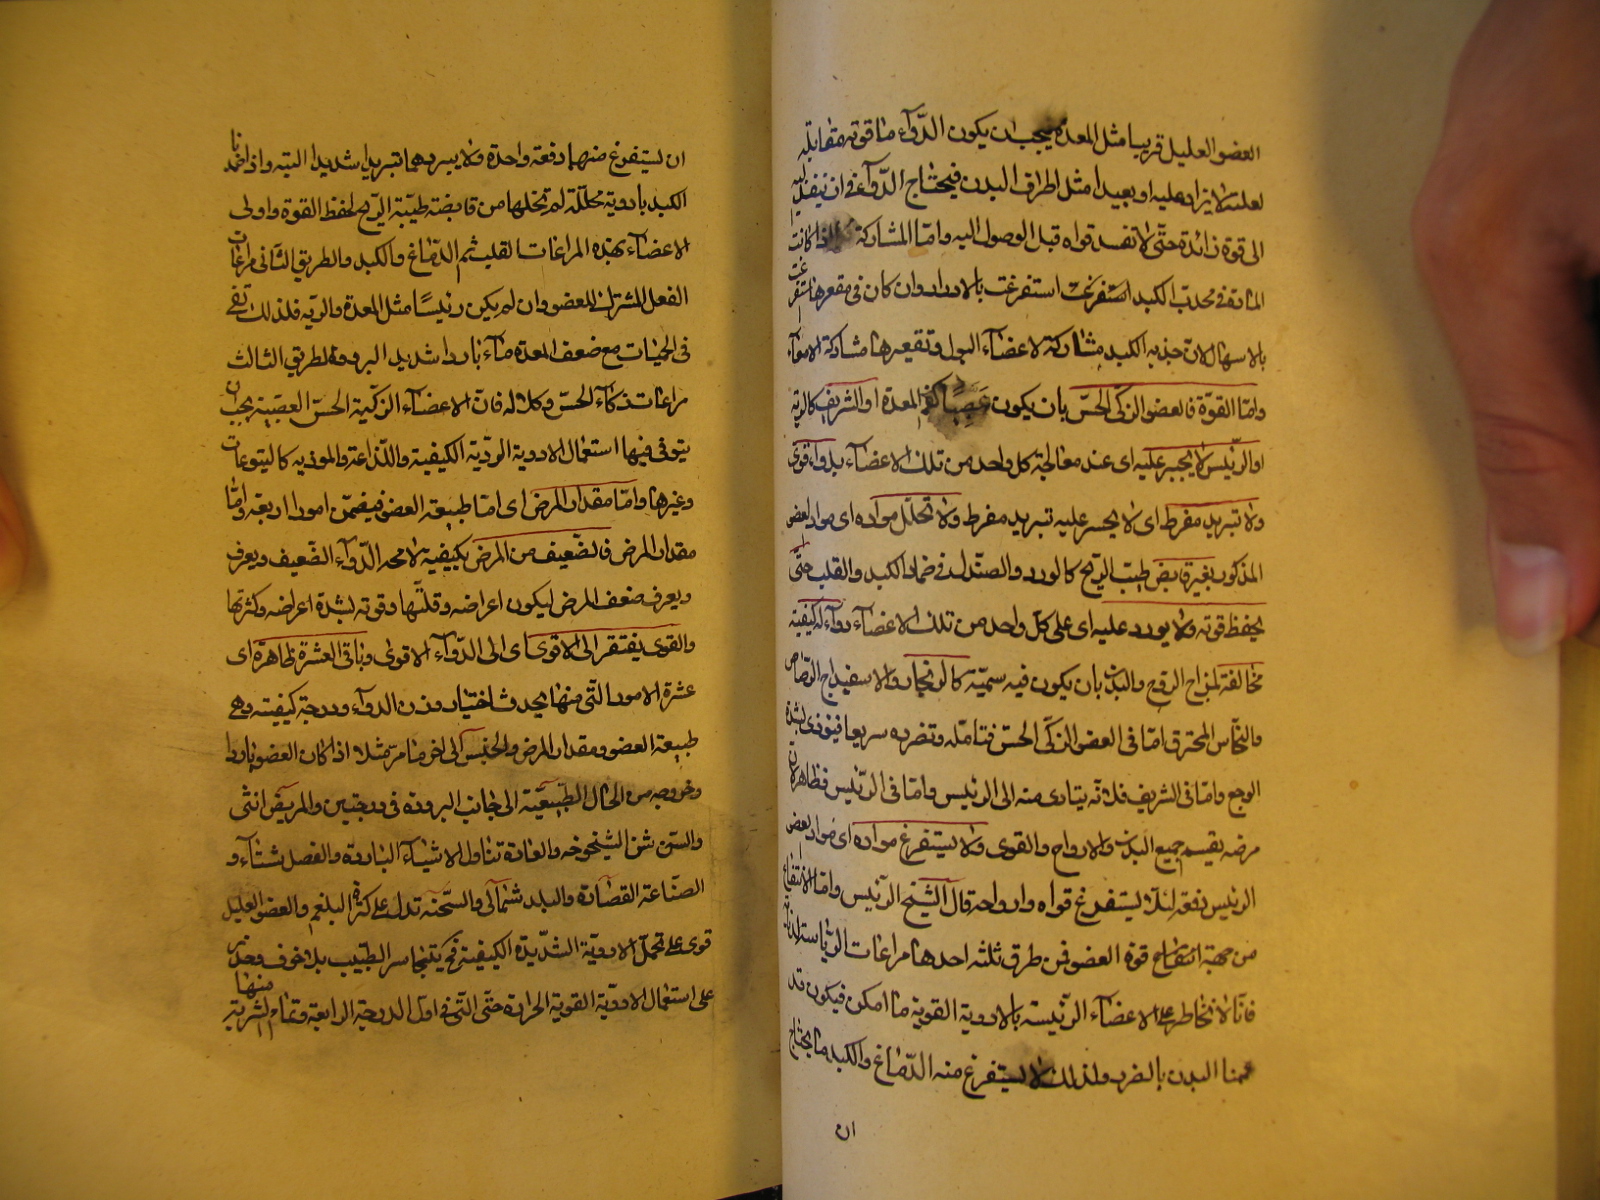 العضو العليل قريبا مثل المعدة يجب ان يكون الدّوآء ما قوته مقابلة
لعلته لا يزاد عليه او بعيدا مثل اطراف البدن فيحتاج الدّوآء فى ان ينفذ اليه
الى قوة زائدة حتّى لا تفسد قواه قبل الوصول اليه وامّا المشاركة اذا كانت
المادة فى محدب الكبد استفرغت بالادرار وان كان فى مقعرها استفرغت
بالاسهال لان حدبه الكبد مشاركة لاعضآء البول وتقعيرها مشاركة الامعآء
وامّا القوّة فالعضو الزكى الحسّ بان يكون عصبيا كفم المعدة او الشريف كالرية
او الرّئيس لا يجسر عليه اى عند معالجة كل واحد من تلك الاعضآء بدوآء قوى
ولا تبريد مفرط اى لا يجسر عليه تبريد مفرط ولا تحلّل مواده اى مواد العضو
المذكور بغير قابض طيب الريح كالورد والصندل فى ضماد الكبد والقلب حتّى
يحفظ قوته ولا يورد عليه اى على كل واحد من تلك الاعضآء دوآء له كيفية
مخالفة لمزاج الروح والبدن بان يكون فيه سميّة كالزنجار والاسفيداج الرّصاص
والنحاس المحترق امّا فى العضو الزكّى الحسّ فتألمه وتضرّه سريعا فيؤذى لشدة
الوجع وامّا فى الشريف فلانّه يتادى منه الى الرّئيس وامّا فى الرّئيس فظاهر لان
مرضه يقسم جميع البدن والارواح والقوى ولا يستفرغ مواده اى مواد العضو
الرئيس دفعة لئلا يستفرغ قواه وارواحه قال الشّيخ الرّئيس وامّا الانتفاع
من جهة قوة العضو فمن طرق ثلثة احدها مراعات الرّياسة
فانّا لا نخاطر على الاعضآء الرّئيسة بالادوية القوية ما امكن فيكون قد
عممنا البدن بالضرر ولذلك لا يستفرغ منه الدّماغ والكبد ما يحتاج
ان
ان يستفرغ منهما دفعة واحدة ولا يبردهما تبريدا شديدا البتة واذا ضمدنا
الكبد بادوية محلّلة لم تخلها من قابضة طيّبة الرّيح لحفظ القوة واولى
الاعضآء بهذه المراعات القلب ثم الدّماغ والكبد والطريق الثّانى مراعات
الفعل المشترك للعضو وان لم يكن رئيسًا مثل المعدة والرّية فلذلك لا نسقى
فى الحميات مع ضعف المعدة مآء باردا شديد البرد والطريق الثالث
مراعات ذكآء الحسّ وكلاله فانّ الاعضآء الزكيّة الحسّ العصبيّة يجب ان
يتوقى فيها استعمال الادوية الردّية الكيفية واللذّاعة والموذيه كاليتوعات
وغيرها وامّا مقدار المرض اى امّا طبيعة العضو فيضمّن امورا اربعة وامّا
مقدار المرض فالضّعيف من المرض يكفيه لا محه الدّوآء الضّعيف ويعرف
ويعرف ضعف المرض ليكون اعراضه وقلّتها وقوته لشدة اعراضه وكثرتها
والقوى يفتقر الى الاقوى اى الى الدّوآء الاقوى وباقى العشرة ظاهرة اى
عشرة الامور الّتى منها يحدث اختيار وزن الدوآء ودرجة كيفيته وهى
طبيعة العضو ومقدار المرض والجنس الى اخر ما مر مثلا اذا كان العضو باردا
وخروجه من الحال الطّبيعيّة الى جانب البرودة فى درجتين والمريض انثى
والسّن سّن الشّيخوخه والعادة تناول الاشيآء الباردة والفصل شتآء و
الصّناعة القصّارة والبلد شمالى والسّحنه تدل على كثرة البلغم والعضو العليل
قوى على تحمّل الادوية الشّديدة الكيفية فح يتجاسر الطّبيب بلا خوف وحذر
على استعمال الادوية القوية الحرارة حتّى الّتى فى اول الدرجة الرابعة وتمام الشربة منها